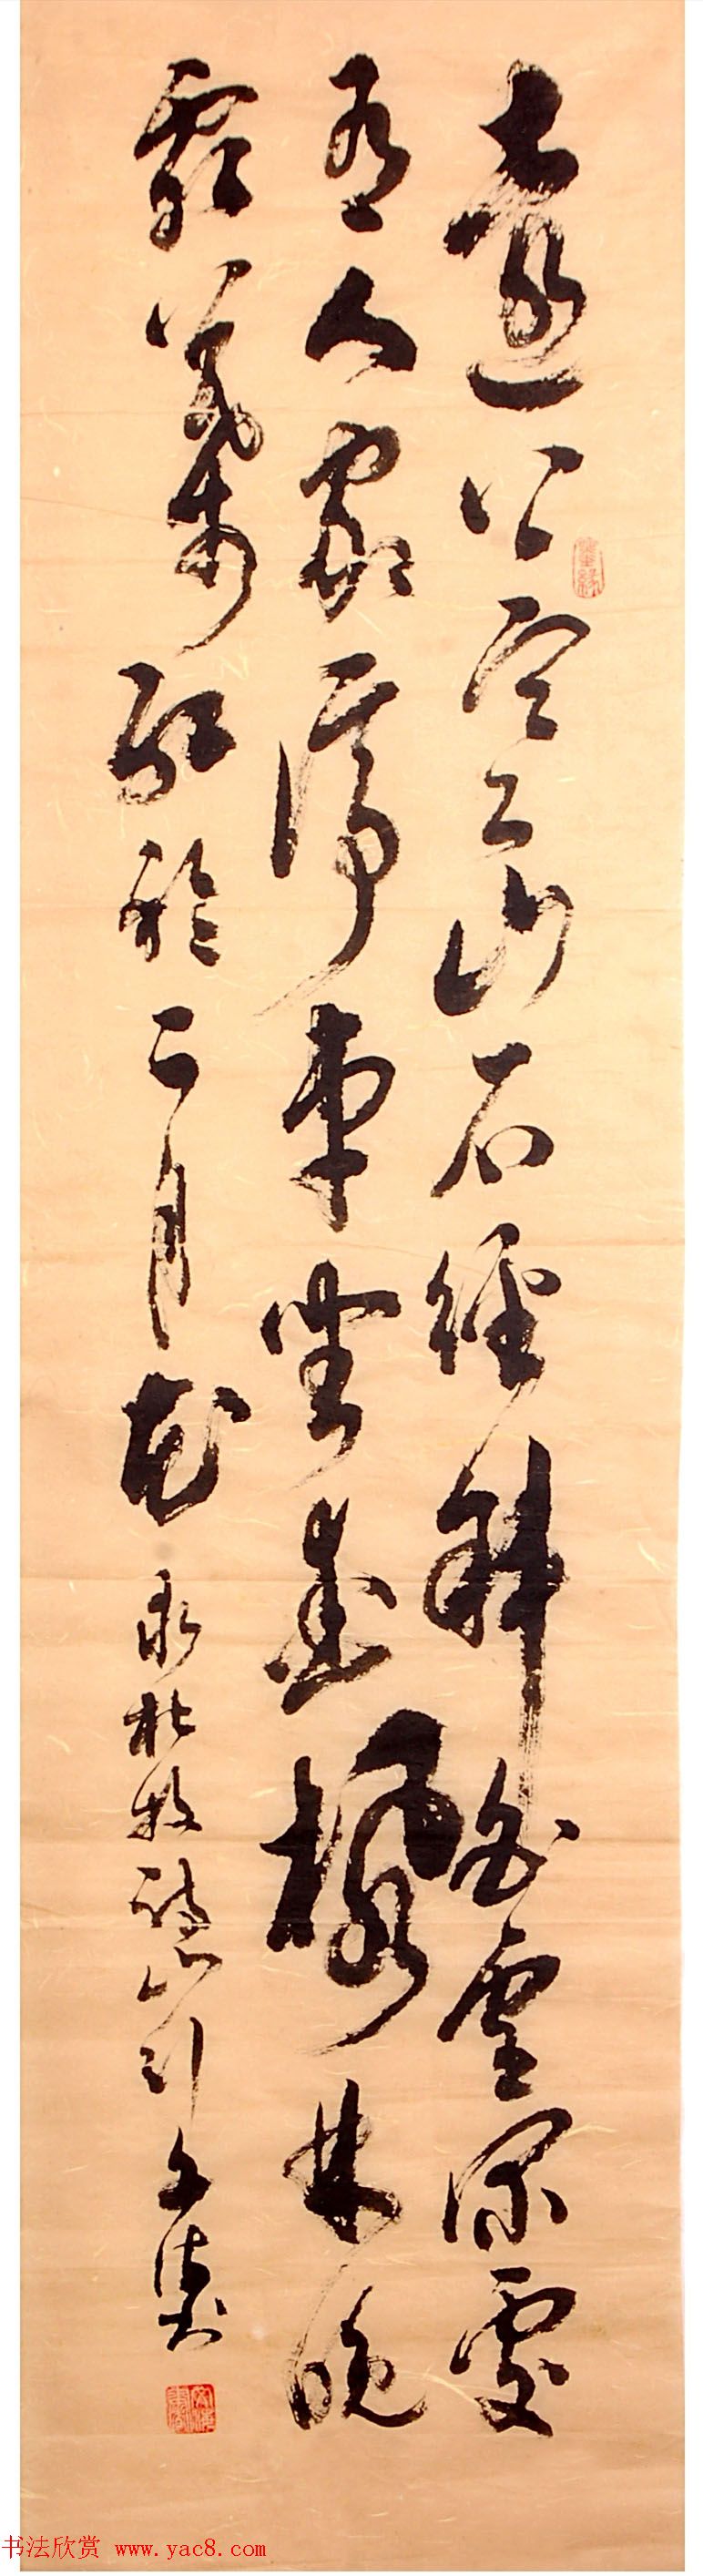 遠上寒山石徑斜白雲深處
有人家停車坐愛楓林晚
霜葉紅於二月花 录杜牧詩山行
墨缘
书法欣赏 www.yac8.com